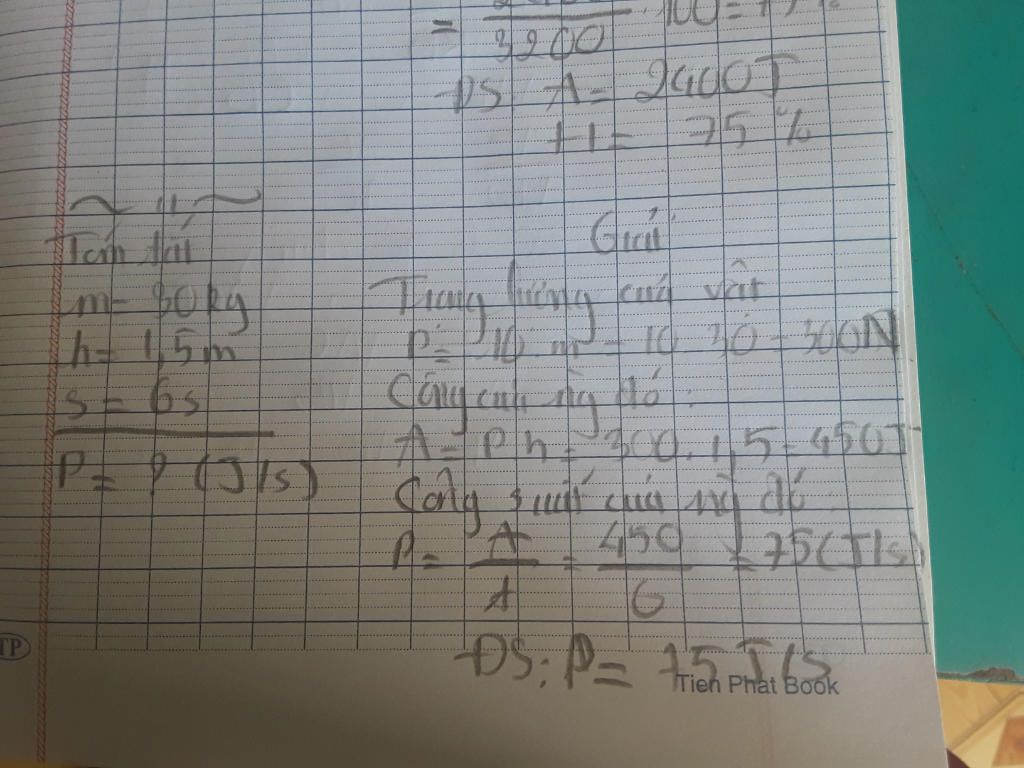 = /3200 . 100 = 75%
ĐS A = 2400J
H = 75 %
Tóm tắt
m = 30kg
h = 1,5m
s = 6s
P = ? (J/s)
Giải
Trọng lượng của vật
P = 10 . m = 10 . 30 = 300N
Công của ng đó :
A = P . h = 300 . 1,5 = 450J
Công suất của ng đó
P = A/A = 450/6 = 75(J/s)
ĐS : P = 75 J/s
TP
Tien Phat Book